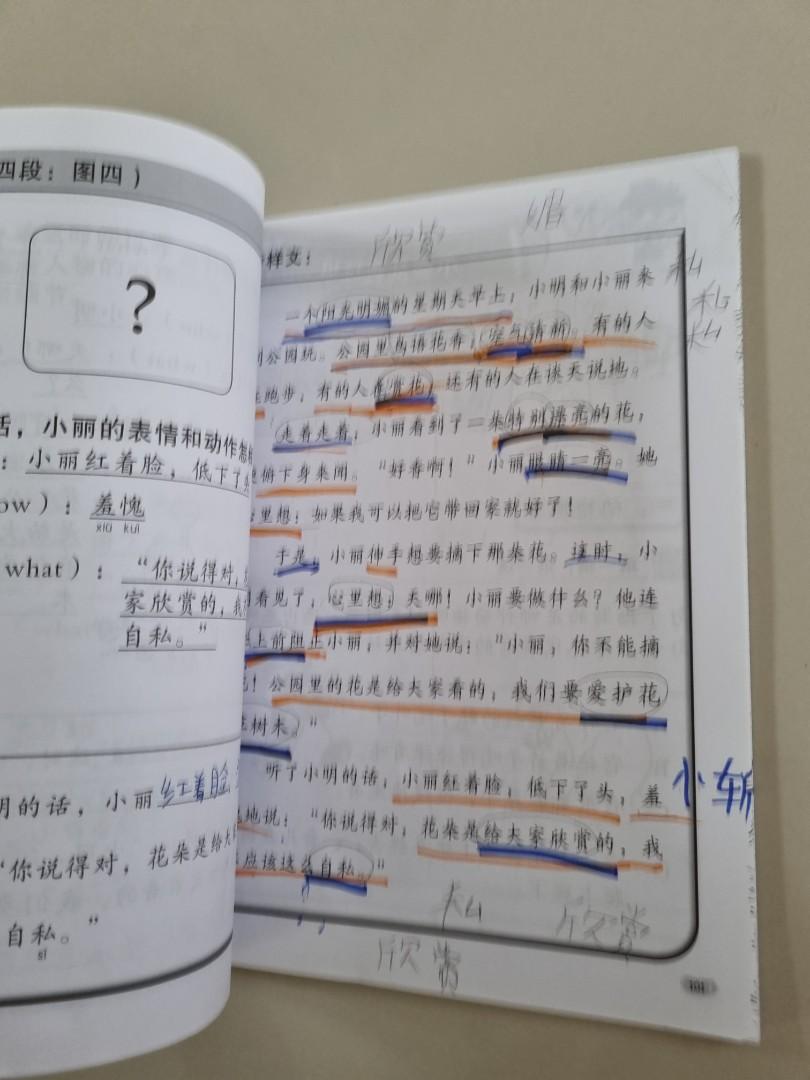 四段：图四）
？
话，小丽的表情和动作怎
：小丽红着脸，低下了头
ow）：羞愧
xiū kuì
what）：“你说得对，
家欣赏的，我
自私。”
明的话，小丽红着脸
“你说得对，花朵是给大
自私。”
sī
欣赏 媚
样文：
私
私
私
一个阳光明媚的星期天早上，小明和小丽来
到公园玩。公园里鸟语花香，空气清新。有的人
在跑步，有的人在赏花，还有的人在谈天说地。
走着走着，小丽看到了一朵特别漂亮的花，
便俯下身来闻。“好香啊！”小丽眼睛一亮。她
心里想：如果我可以把它带回家就好了！
于是，小丽伸手想要摘下那朵花。这时，小
明看见了，心里想：天哪！小丽要做什么？他连
忙上前阻止小丽，并对她说：“小丽，你不能摘
花！公园里的花是给大家看的，我们要爱护花
草树木。”
听了小明的话，小丽红着脸，低下了头，羞
愧地说：“你说得对，花朵是给大家欣赏的，我
不应该这么自私。”
私 欣赏
欣赏
101